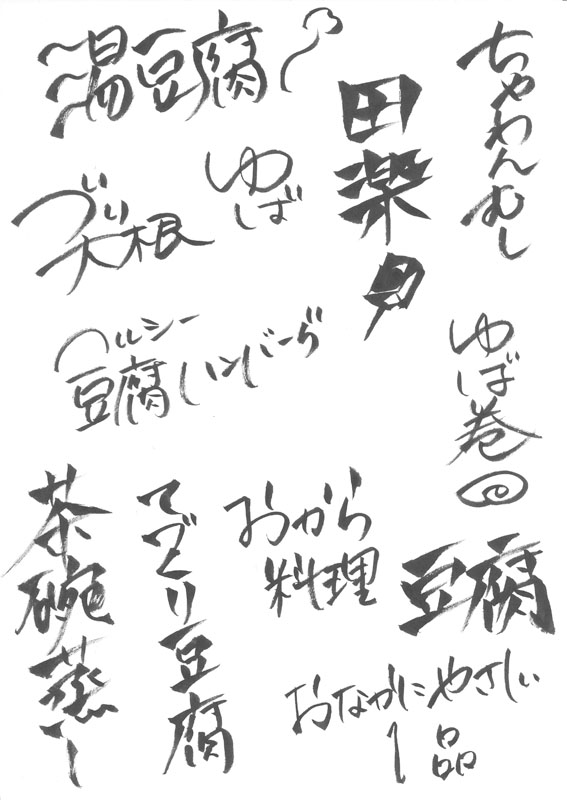 湯豆腐
ちゃわんむし
田楽
ゆば
ぶり
大根
ヘルシー
豆腐ハンバーグ
ゆば巻
茶碗蒸し
てづくり豆腐
おから
料理
豆腐
おなかにやさしい
一品